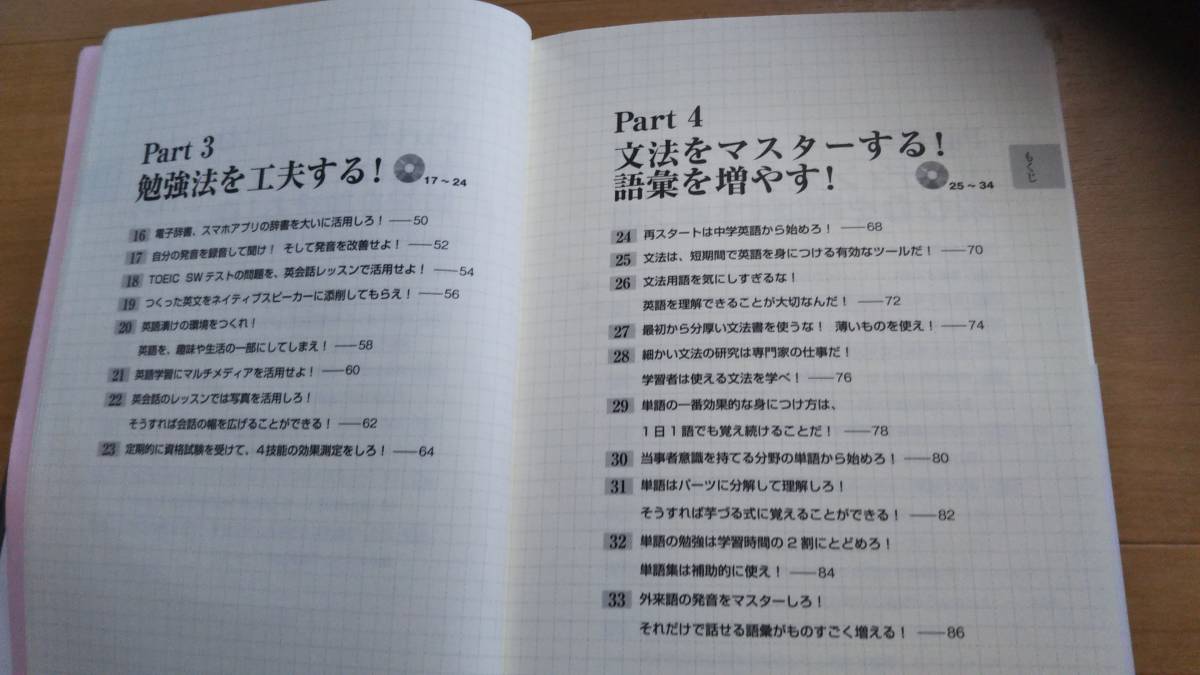 Part 3
勉強法を工夫する！ 17～24
16 電子辞書、スマホアプリの辞書を大いに活用しろ！ ――50
17 自分の発音を録音して聞け！ そして発音を改善せよ！ ――52
18 TOEIC SWテストの問題を、英会話レッスンで活用せよ！ ――54
19 つくった英文をネイティブスピーカーに添削してもらえ！ ――56
20 英語漬けの環境をつくれ！
英語を、趣味や生活の一部にしてしまえ！ ――58
21 英語学習にマルチメディアを活用せよ！ ――60
22 英会話のレッスンでは写真を活用しろ！
そうすれば会話の幅を広げることができる！ ――62
23 定期的に資格試験を受けて、4技能の効果測定をしろ！ ――64
Part 4
文法をマスターする！
語彙を増やす！ 25～34
もくじ
24 再スタートは中学英語から始めろ！ ――68
25 文法は、短期間で英語を身につける有効なツールだ！ ――70
26 文法用語を気にしすぎるな！
英語を理解できることが大切なんだ！ ――72
27 最初から分厚い文法書を使うな！ 薄いものを使え！ ――74
28 細かい文法の研究は専門家の仕事だ！
学習者は使える文法を学べ！ ――76
29 単語の一番効果的な身につけ方は、
1日1語でも覚え続けることだ！ ――78
30 当事者意識を持てる分野の単語から始めろ！ ――80
31 単語はパーツに分解して理解しろ！
そうすれば芋づる式に覚えることができる！ ――82
32 単語の勉強は学習時間の2割にとどめろ！
単語集は補助的に使え！ ――84
33 外来語の発音をマスターしろ！
それだけで話せる語彙がものすごく増える！ ――86